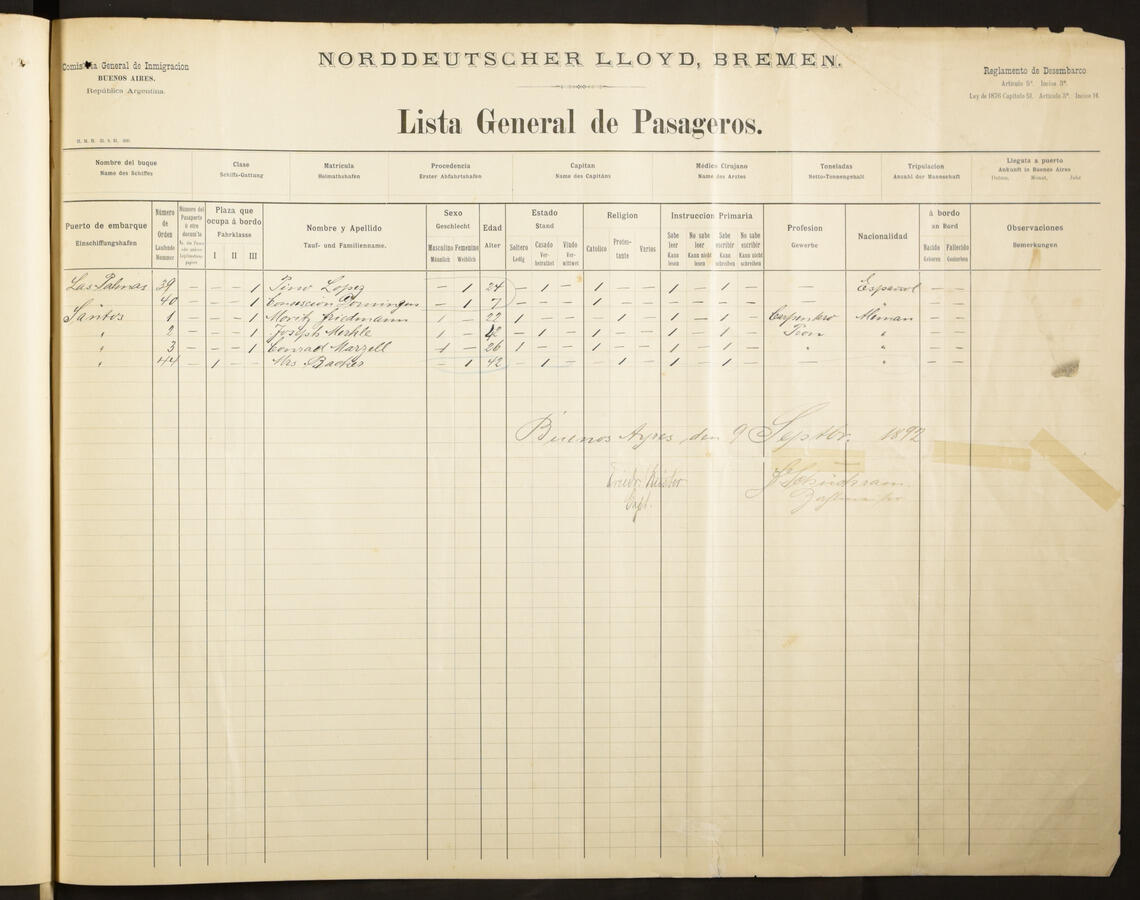 NORDDEUTSCHER LLOYD, BREMEN.
Comisaría General de Inmigracion
BUENOS AIRES.
República Argentina.
Reglamento de Desembarco
Artículo 9º. Inciso 3º.
Ley de 1876 Capítulo 51. Artículo 3º. Inciso 14.
Lista General de Pasageros.
Nombre del buque Clase Matrícula Procedencia Capitan Médico Cirujano Toneladas Tripulacion Llegata a puerto
Name des Schiffes Schiffs-Gattung Heimathshafen Erster Abfahrtshafen Name des Capitäns Name des Arztes Netto-Tonnengehalt Anzahl der Mannschaft Ankunft in Buenos Aires
Datum, Monat, Jahr
Puerto de embarque Número de Orden Número del Pasaporte ó otro Plaza que ocupa á bordo Nombre y Apellido Sexo Edad Estado Religion Instruccion Primaria Profesion Nacionalidad á bordo Observaciones
Einschiffungshafen Laufende Nummer Fahrklasse Tauf- und Familienname. Geschlecht Alter Stand Gewerbe an Bord Bemerkungen
I II III Masculino Femenino Soltero Casado Viudo Catolico Protes-tante Varios Sabe leer No sabe leer Sabe escribir No sabe escribir Nacido Fallecido
Männlich Weiblich Ledig Ver-heirathet Ver-wittwet Kann lesen Kann nicht lesen Kann schreiben Kann nicht schreiben Geboren Gestorben
Las Palmas 39 — — — 1 Pino Lopez — 1 24 — 1 — 1 — — 1 — 1 — — Español — —
" 40 — — — 1 Concepcion Domingues — 1 7 — — — 1 — — — — — — — " — —
Santos 1 — — — 1 Moritz Friedmann 1 — 22 1 — — — 1 — 1 — 1 — Carpentero Aleman — —
" 2 — — — 1 Joseph Merkle 1 — 42 — 1 — 1 — — 1 — 1 — Pion " — —
" 3 — — — 1 Conrad Marzell 1 — 26 1 — — 1 — — 1 — 1 — " " — —
" 44 — 1 — — Mrs Backer — 1 42 — 1 — — 1 — 1 — 1 — — " — —
Buenos Ayres, den 9 Septbr. 1892
Capt. Zahlmeister